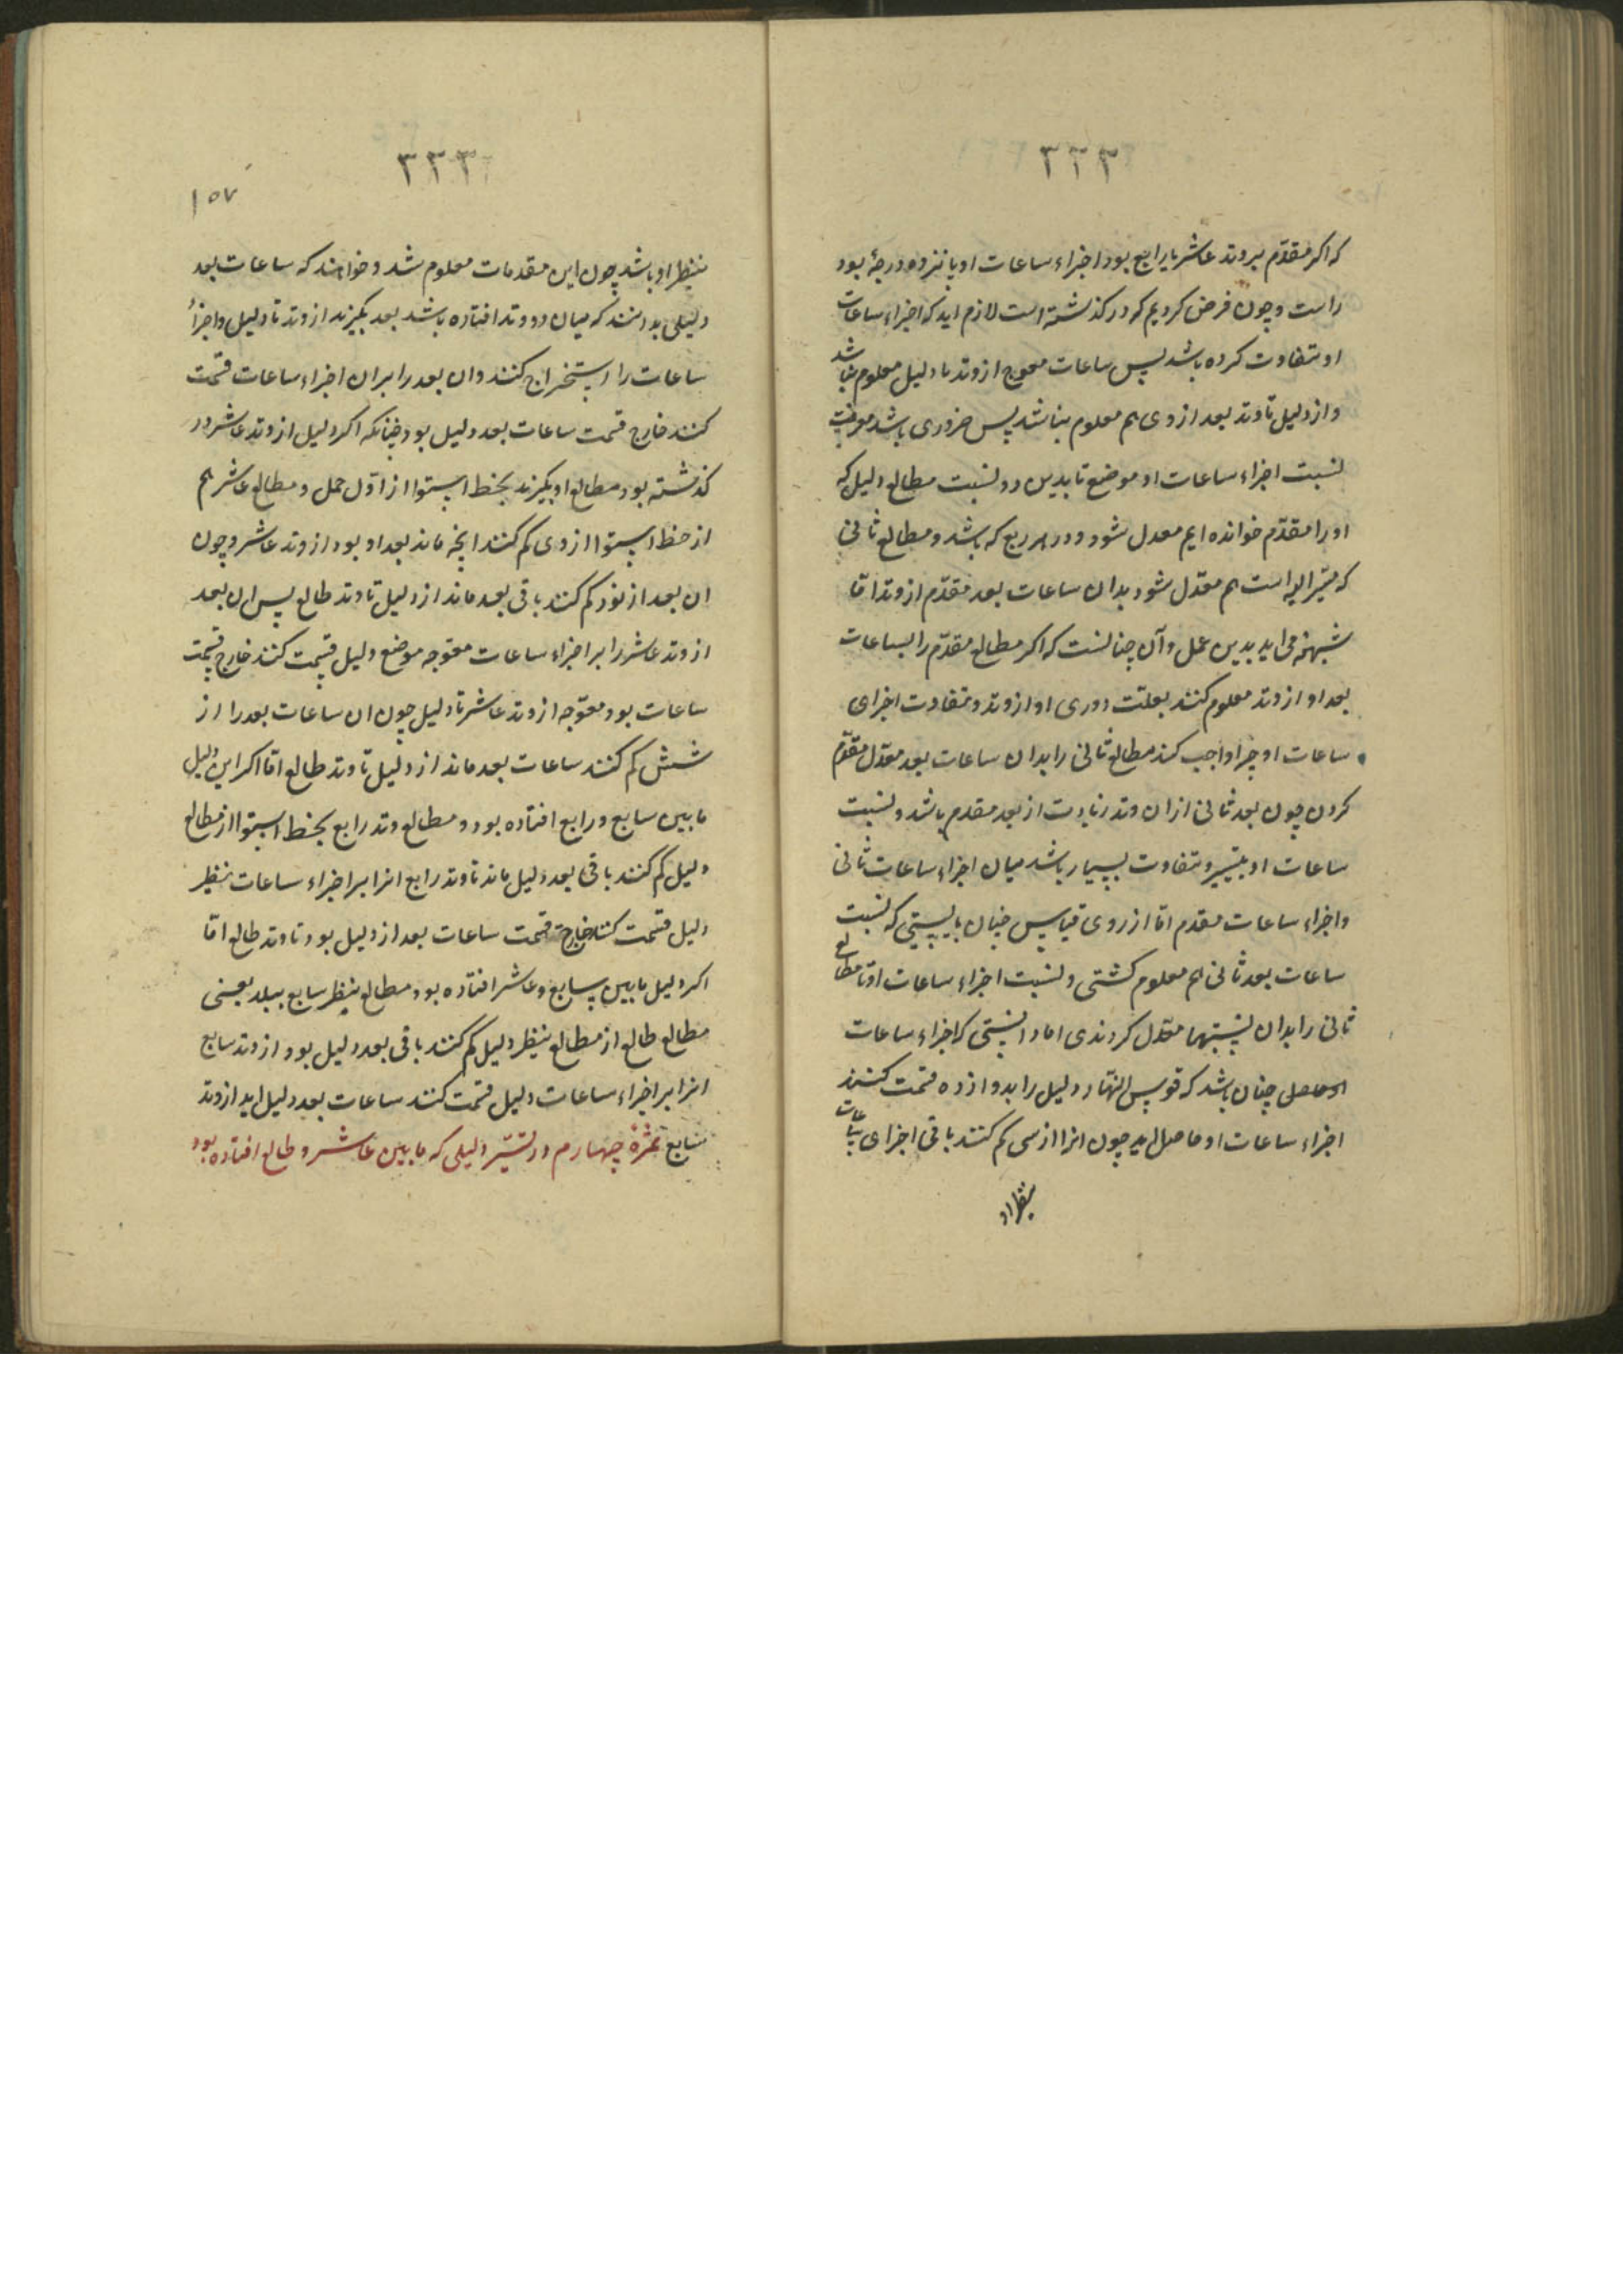 ٣٣٢
که اکر مقدّم بر وتد عاشر یا رابع بود اجزاء ساعات او پانزده درجهٔ بود
راست و چون فرض کردیم که در کذشته است لازم اید که اجزاء ساعات
او متفاوت کرده باشد پس ساعات معوج از وتد تا دلیل معلوم نباشد
و از دلیل تا وتد بعد از وی هم معلوم نباشد پس ضروری باشد معرفت
نسبت اجزاء ساعات او موضع تا بدین دو نسبت مطالع دلیل که
او را مقدّم خوانده ایم معدل شود و در هر ربع که باشد و مطالع ثانی
که مسیّر الیه است هم معدّل شود بدان ساعات بعد مقدّم از وتد امّا
شبهه می اید بدین عمل و آن چنانست که اکر مطالع مقدّم را بساعات
بعد او از وتد معلوم کنند بعلّت دوری او از وتد و متفاوت اجزای
ساعات او چرا واجب کند مطالع ثانی را بدان ساعات بعد معدّل مقدّم
کردن چون بعد ثانی از ان وتد زیادت از بعد مقدم باشد و نسبت
ساعات او بتسییر و متفاوت بسیار باشد میان اجزاء ساعات ثانی
و اجزاء ساعات مقدم امّا از روی قیاس چنان بایستی که نسبت
ساعات بعد ثانی هم معلوم کشتی و نسبت اجزاء ساعات او تا مطالع
ثانی را بدان نسبتها معدّل کردندی اما دانستی که اجزاء ساعات
الحاصلی چنان باشد که قوس النهار دلیل را بدوازده قسمت کنند
اجزاء ساعات او حاصل اید چون انرا از سی کم کنند باقی اجزای ساعات
نظیر او
٣٣٣
١٥٧
نظیر او باشد چون این مقدمات معلوم شد و خواهند که ساعات بعد
دلیلی بدانند که میان دو وتد افتاده باشد بعد بکیرند از وتد تا دلیل و اجزاء
ساعات را استخراج کنند و ان بعد را بر ان اجزاء ساعات قسمت
کنند خارج قسمت ساعات بعد دلیل بود چنانکه اکر دلیل از وتد عاشر در
کذشته بود مطالع او بکیرند بخط استوا از اوّل حمل و مطالع عاشر هم
از خط استوا از وی کم کنند انچه ماند بعد او بود از وتد عاشر و چون
ان بعد از نود کم کنند باقی بعد ماند از دلیل تا وتد طالع پس ان بعد
از وتد عاشر را بر اجزاء ساعات معوّجه موضع دلیل قسمت کنند خارج قسمت
ساعات بود معوّجه از وتد عاشر تا دلیل چون ان ساعات بعد را از
شش کم کنند ساعات بعد ماند از دلیل تا وتد طالع امّا اکر این دلیل
ما بین سابع و رابع افتاده بود و مطالع وتد رابع بخط استوا از مطالع
دلیل کم کنند باقی بعد دلیل ماند تا وتد رابع انرا بر اجزاء ساعات نظیر
دلیل قسمت کنند خارج قسمت ساعات بعد از دلیل بود تا وتد طالع امّا
اکر دلیل ما بین سابع و عاشر افتاده بود مطالع نظیر سابع ببلد یعنی
مطالع طالع از مطالع نظیر دلیل کم کنند باقی بعد دلیل بود از وتد سابع
انرا بر اجزاء ساعات دلیل قسمت کنند ساعات بعد دلیل اید از وتد
سابع ثمرهٔ چهارم در تسیّر دلیلی که ما بین عاشر و طالع افتاده بود